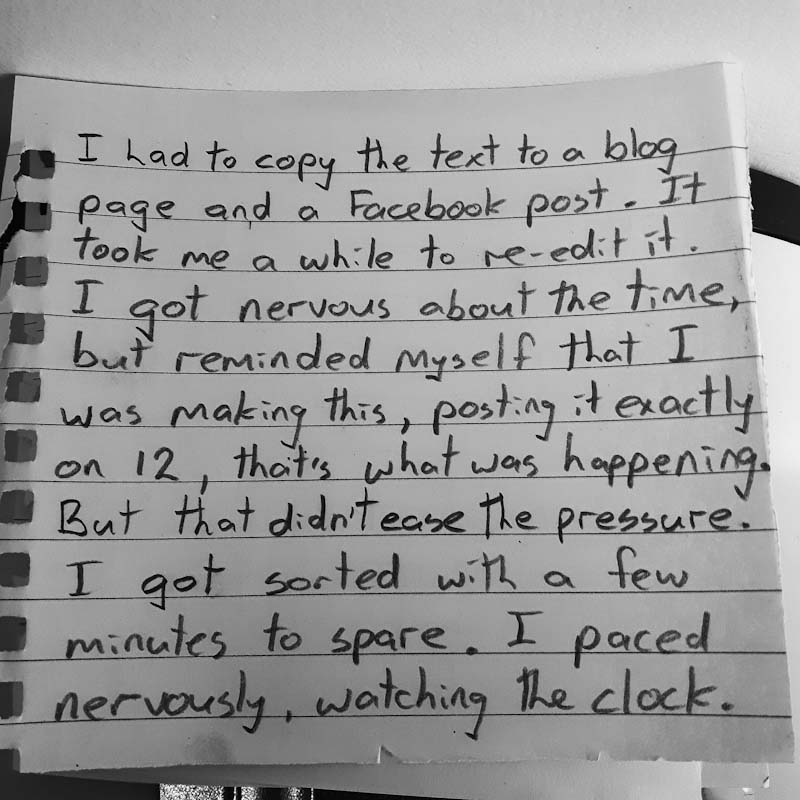 I had to copy the text to a blog
page and a Facebook post. It
took me a while to re-edit it.
I got nervous about the time,
but reminded myself that I
was making this, posting it exactly
on 12, that's what was happening.
But that didn't ease the pressure.
I got sorted with a few
minutes to spare. I paced
nervously, watching the clock.